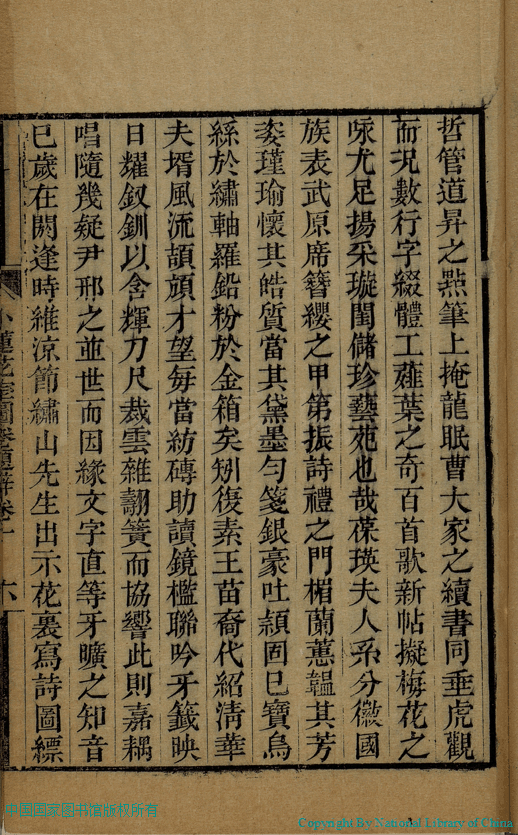 哲管道昇之㸃筆上掩龍眠曹大家之續書同垂虎觀
而況數行字綴體工薤葉之奇百首歌新帖擬梅花之
咏尤足揚采璇閨儲珍藝苑也哉葆瑛夫人系分徽國
族表武原席簪纓之甲第振詩禮之門楣蘭蕙韞其芳
姿瑾瑜懷其皓質當其黛墨勻箋銀豪吐頴固已寶烏
絲於繡軸羅鉛粉於金箱矣矧復素王苗裔代紹淸華
夫壻風流頡頏才望每當紡磚助讀鏡檻聯吟牙籤映
日耀釵釧以舍輝刀尺裁雲雜翿簧而協響此則嘉耦
唱隨幾疑尹邢之並世而因緣文字直等牙曠之知音
巳歲在閼逢時維涼節繡山先生出示花裏寫詩圖縹
小蓮花室圖卷題辭卷一
六
中国国家图书馆版权所有
Copyright By National Library of China